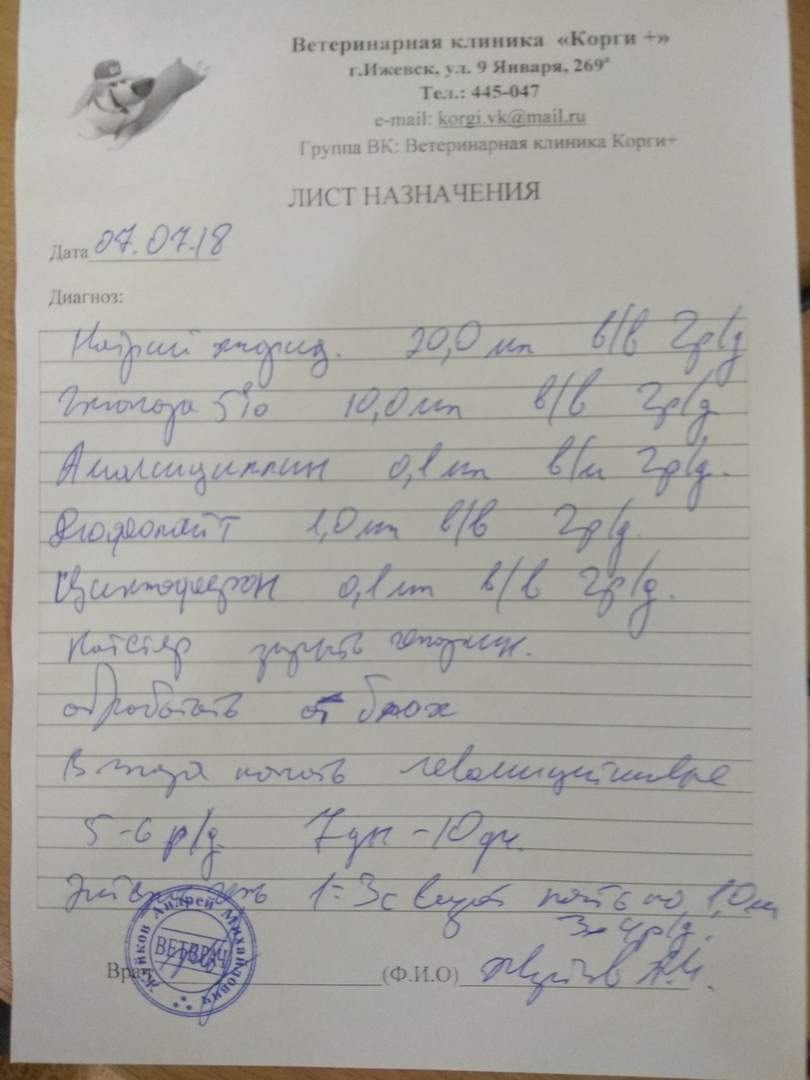 Ветеринарная клиника «Корги +»
г.Ижевск, ул. 9 Января, 269а
Тел.: 445-047
e-mail: korgi.vk@mail.ru
Группа ВК: Ветеринарная клиника Корги+
ЛИСТ НАЗНАЧЕНИЯ
Дата 07.07.18
Диагноз:
Натрий хлорид. 20,0 мл в/в 2р/д
Глюкоза 5% 10,0 мл в/в 2р/д
Амоксициллин 0,1 мл в/м 2р/д.
Дюфалайт 1,0 мл в/в 2р/д.
Циклоферон 0,1 мл в/в 2р/д.
Катетер закрыть гепарин.
обработать от блох
В глаза капать левомицетиновые
5-6 р/д. 7дн-10дн.
1=3с пить по 1,0 мл
3-4р/д.
Врач (Ф.И.О)
Жуйков Андрей Михайлович
ВЕТВРАЧ